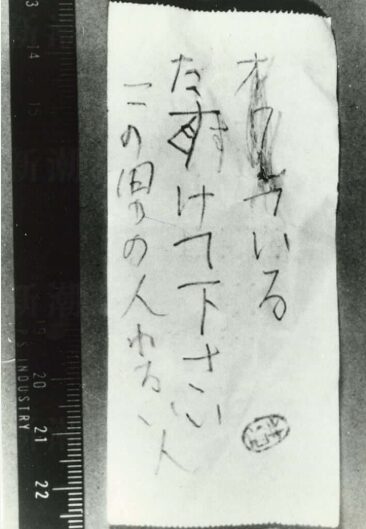 オワれている
たすけて下さい
この男の人わるい人
14
15
19
20
21
22
INDUSTRY